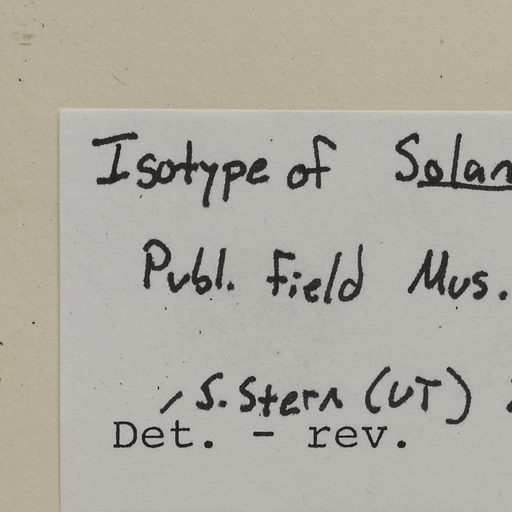 Isotype of Solan
Publ. Field Mus.
S. Stern (UT)
Det. - rev.